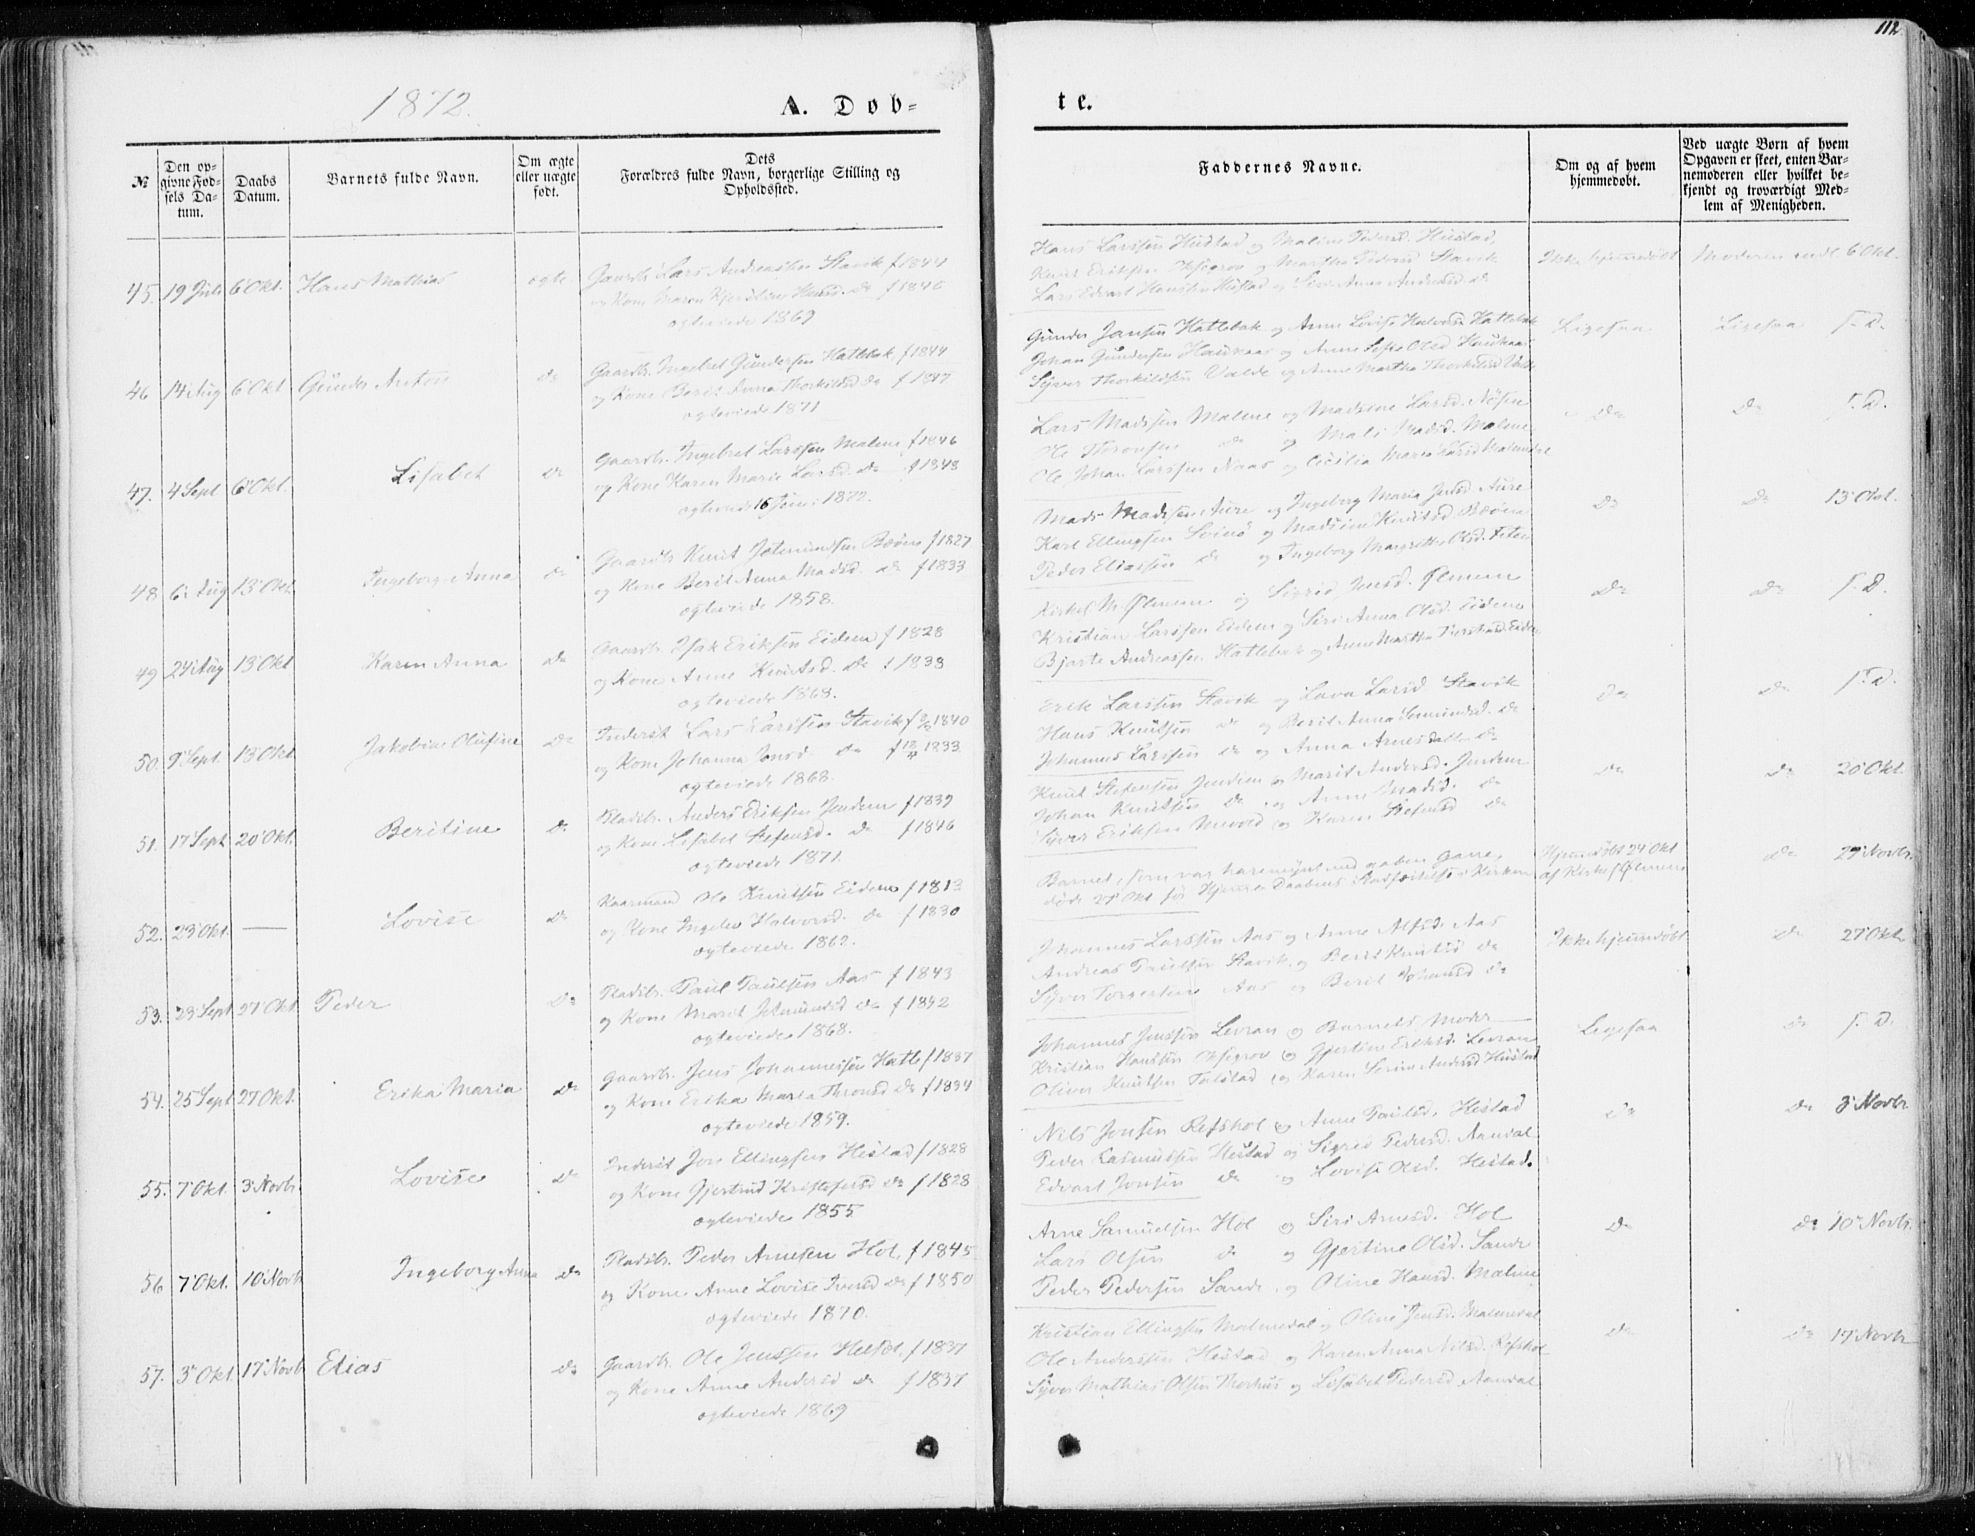 112
1872.
A. Døb-
te.
№
Den op-
givne Fød-
sels Da-
tum.
Daabs
Datum.
Barnets fulde Navn.
Om ægte
eller uægte
født.
Dets
Forældres fulde Navn, borgerlige Stilling og
Opholdssted.
Faddernes Navne.
Om og af hvem
hjemmedøbt.
Ved uægte Børn af hvem
Opgaven er skeet, enten Bar-
nemoderen eller hvilket be-
kjendt og troværdigt Med-
lem af Menigheden.
45. 19 Juli 6 Okt. Hans Mathias ægte
Gaardb. Lars Andreassen Stavik f 1844
og Kone Maren Hansd. do f 1846
ægteviede 1869
Hans Larssen Hustad og Maline Pedersd. Hustad,
Knut Eriksen og Martha Pedersd Stavik
Lars Edvart Hanssen Hustad og Siri Anna Andreasd do
Ikke hjemmedøbt Moderen indl. 6 Okt.
46 14 Aug 6 Okt Gunder Anton do
Gaardb. Ingebret Gundersen Hattebak f 1844
og Kone Berit Anna Thorkildsd do f 1847
ægteviede 1871
Gunder Jansen Hattebak og Anne Lovise Halvorsd Hattebak
Johan Gundersen Haukaas og Anne Olsd Haukaas
Syver Thorkildsen Valde og Anne Martha Thorkildsd Valde
Ligesaa Ligesaa S. D.
47. 4 Sept 6 Okt. Lisabet do
Gaardb. Ingebret Larssen Malme f 1846
og Kone Karen Marie Larsd. do f 1848
ægteviede 16 Juni 1872.
Lars Madssen Malme og Madsine Larsd. Nøsen
Ole do og Mali Madsd. Malme
Ole Johan Larssen Naas og Cecilia Maria Larsd Malmedal
do do S. D.
48 6 Aug 13 Okt. Ingeborg Anna do
Gaardb. Knut Bøvre f 1827
og Kone Berit Anna Madsd. do f 1833
ægteviede 1858.
Mads Madssen Aure og Ingeborg Maria Jensd Aure
Karl Ellingsen Svinø og Madsine Knutsd Bævre
Peder Eliassen do og Ingeborg Margrethe Olsd.
do do 13 Okt.
49 24 Aug 13 Okt Karen Anna do
Gaardb. Isak Eriksen Eidem f 1828
og Kone Anne Knutsd. do f 1838
ægteviede 1868.
M. Ølmem og Sigrid Jensd. Ølmem
Kristian Larssen Eidem og Siri Anna Olsd. Eidem
Bjarte Andreassen Hattebak og Anne Martha
do do S. D.
50. 9 Sept. 13 Okt Jakobine Olufine do
Inderst Lars Larssen Stavik f 1840
og Kone Johanna Jonsd do f 1833
ægteviede 1868.
Erik Larssen Stavik og Lava Larsd Stavik
Hans Knutsen do og Berit Anna do
Johannes Larssen do og Anna Arnesdatter do
do do S. D.
51. 17 Sept 20 Okt. Beritine do
Pladsb. Anders Eriksen Jendem f 1839
og Kone Lisabet Stefensd. do f 1846
ægteviede 1871.
Knut Stefensen Jendem og Marit Andersd. Jendem
Johan Knutsen do og Anne Madsd. do
Syver Eriksen og Karen Stefensd do
do do 20 Okt
52. 23 Okt. — Lovise do
Kaarmand Ole Knutsen Eidem f 1813
og Kone Halvorsd. do f 1830
ægteviede 1862.
Barnet, som var haremynt med aaben Gane,
døde 25 Okt før Hjemme Daabens Stadfæstelse i Kirken
Hjemmedøbt 24 Okt
af Ølmem
do 27 Novbr.
53. 23 Sept 27 Okt Peder do
Pladsb. Paul Paulsen Aas f 1843
og Kone Marit do f 1842
ægteviede 1868.
Johannes Larssen Aas og Anne Alfsd. Aas
Andreas Paulsen Stavik og Berit Knutsd do
Syver Aas og Berit Johansd do
Ikke hjemmedøbt do 27 Okt
54. 25 Sept 27 Okt. Erika Maria do
Gaardb. Jens Johannessen Hatle f 1837
og Kone Erika Maria Thronsd do f 1834
ægteviede 1859.
Johannes Jenssen Levran og Barnets Moder
Kristian Hanssen og Gjertine Eriksd. Levran
Oliver Knutsen Talstad og Karen Serine Andersd Hustad
Ligesaa do S. D.
55. 7 Okt. 3 Novbr. Lovise do
Inderst Jon Ellingsen Hestad f 1828
og Kone Gjertrud Kristofersd do f 1828
ægteviede 1855
Nils Jonsen Refshol og Anne Paulsd. Hestad
Peder Rasmussen Hestad og Sigrid Pedersd. Aandal
Edvart Jonsen do og Lovise Olsd. Hestad.
do do 3 Novbr
56 7 Okt. 10 Novb Ingeborg Anna do
Pladsb. Peder Arnesen Hol, f 1845
og Kone Anne Lovise Iversd do f 1850
ægteviede 1870.
Arne Samuelsen Hol og Siri Arnesd. Hol
Lars Olsen do og Gjertine Olsd. Sande
Peder Pedersen Sande, og Oline Hansd. Malme
do do 10 Novbr.
57. 3 Okt. 17 Novb Elias do
Gaardb. Ole Jenssen f 1837
og Kone Anne Andersd do f 1837
ægteviede 1869
Kristian Ellingsen Malmedal og Oline Jensd. Malmedal
Ole Anderssen Hestad og Karen Anna Nilsd. Refshol
Syver Mathias Olsen Morhus og Lisabet Pedersd Aandal
do do 17 Novbr